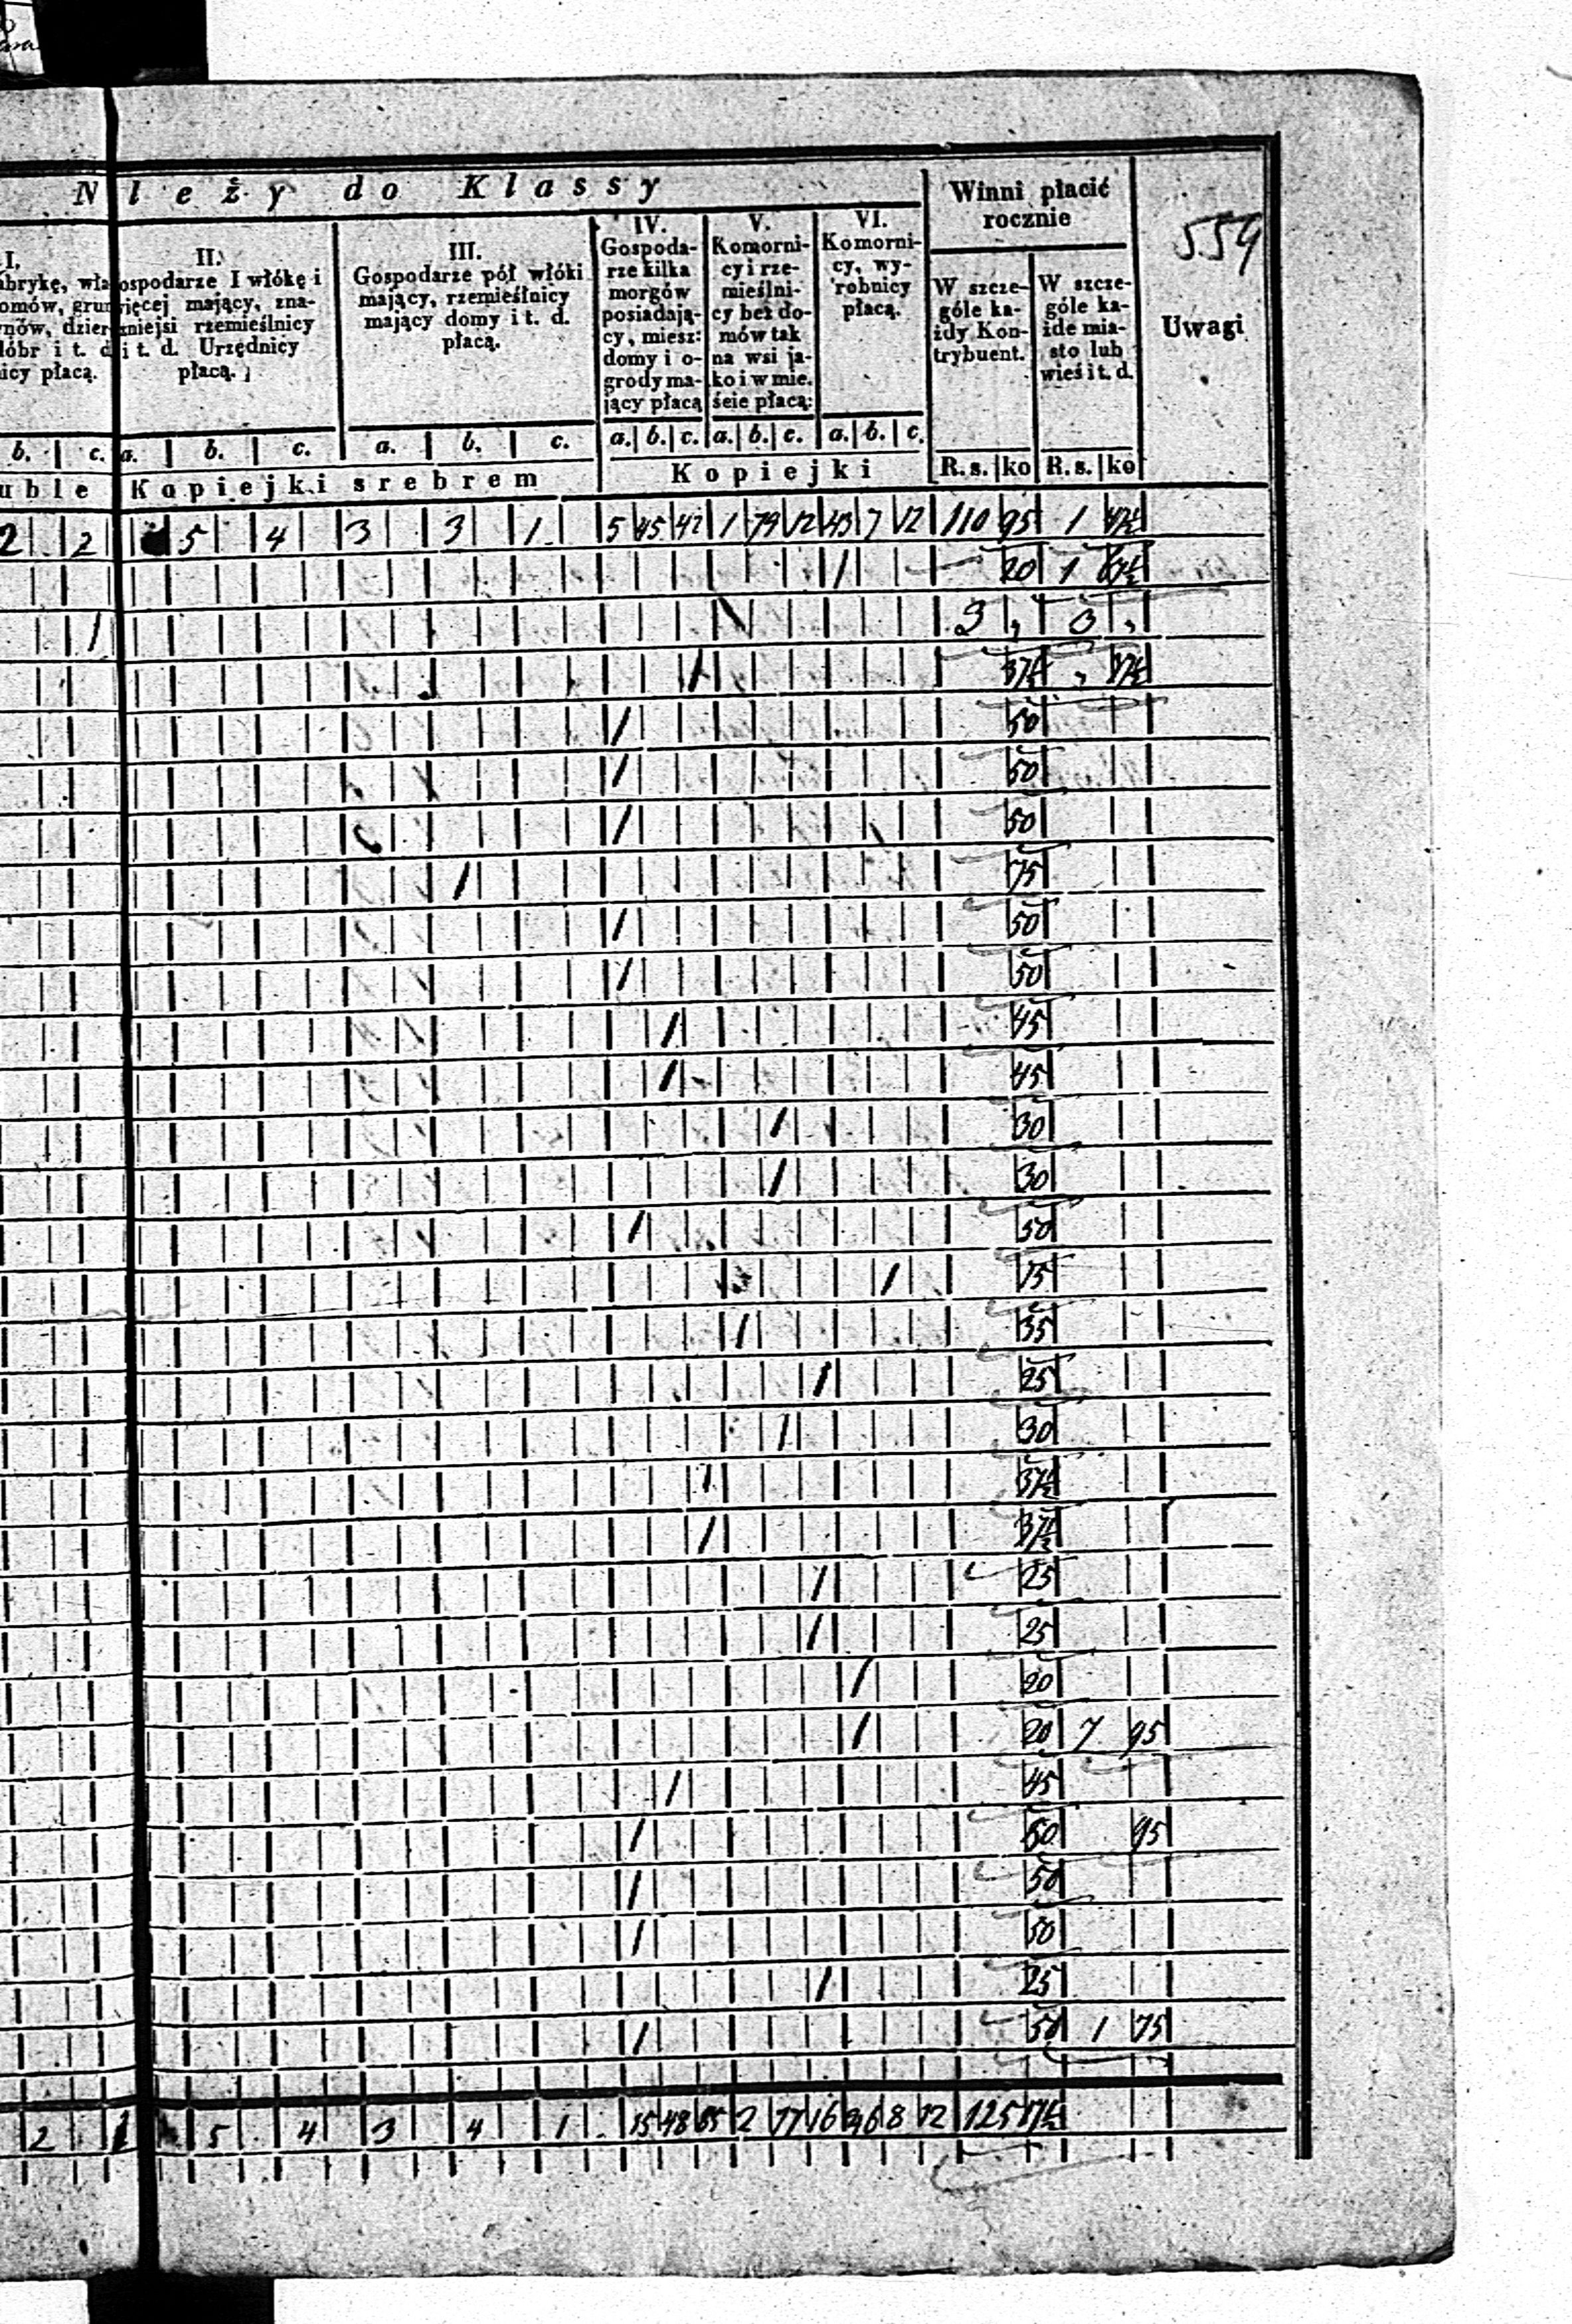 N leży do Klassy
Winni płacić rocznie
554
I.
abrykę, wła
omów, grun
nów, dzier
dóbr i t. d
icy płacą.
II.
ospodarze I włókę i
ięcej mający, zna-
zniejsi rzemieślnicy
i t. d. Urzędnicy
płacą.
III.
Gospodarze pół włóki
mający, rzemieślnicy
mający domy i t. d.
płacą.
IV.
Gospoda-
rze kilka
morgów
posiadają-
cy, miesz:
domy i o-
grody ma-
jący płacą
V.
Komorni-
cy i rze-
mieślni-
cy bez do-
mów tak
na wsi ja-
ko i w mie-
ście płacą:
VI.
Komorni-
cy, wy-
robnicy
płacą.
W szcze-
góle ka-
żdy Kon-
trybuent.
W szcze-
góle ka-
żde mia-
sto lub
wieś i t. d.
Uwagi
b. c. a. b. c. a. b. c. a. b. c. a. b. c. a. b. c.
uble Kopiejki srebrem Kopiejki R. s. ko R. s. ko
2 2 5 4 3 3 1 5 45 42 1 79 12 43 7 12 110 95 1
/ 20 1
/ 3 , 3 ,
/ 37½ , 37½
/ 50
/ 50
/ 50
/ 75
/ 50
/ 50
/ 45
/ 45
/ 30
/ 30
/ 50
/ 15
/ 35
/ 25
/ 30
/ 37½
/ 37½
/ 25
/ 25
/ 20
/ 20 7 95
/ 45
/ 50 95
/ 50
/ 50
/ 25
/ 50 1 75
2 5 4 3 4 1 15 48 2 77 16 8 12 125 17½